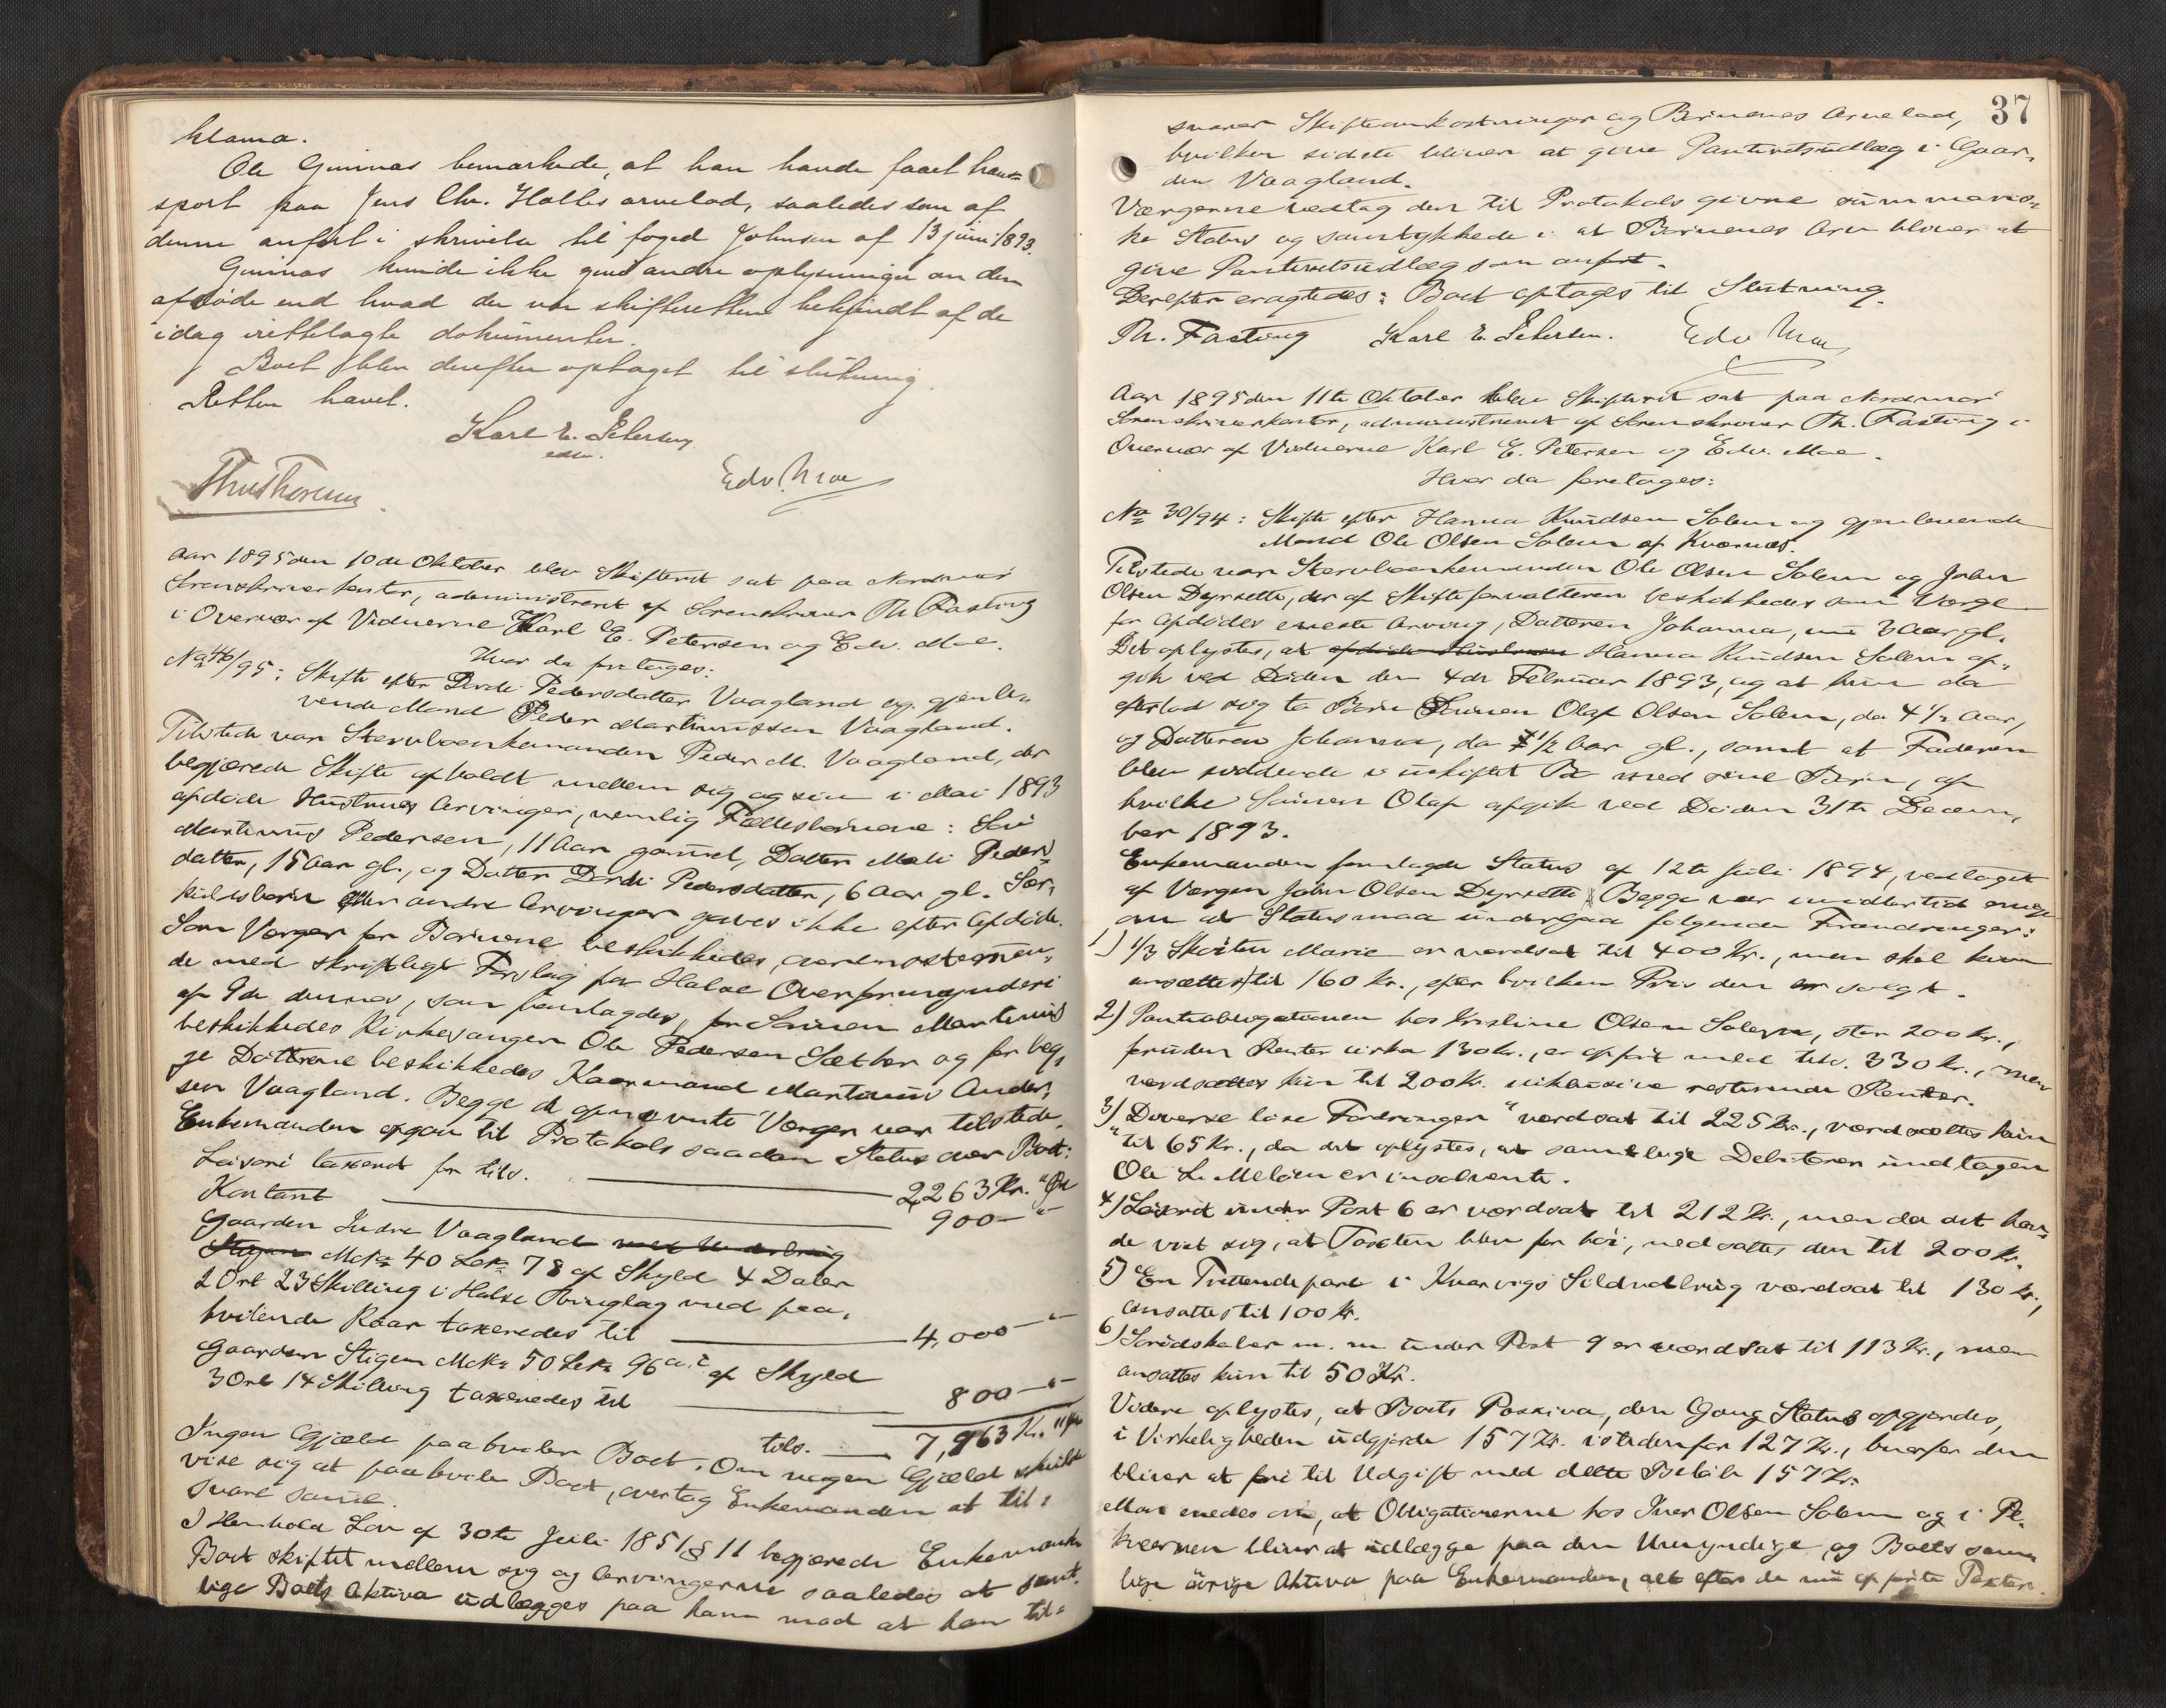 klama.
Ole Guinnas bemærkede, at han havde faaet trans-
sport paa Jens Chr. Halles arvelod, saaledes som af
denne anført i skrivelse til foged Johnsen af 13 juni 1893.
Guinnas kunde ikke give andre oplysninger om den
afdøde end hvad der var skifteretten bekjendt af de
idag irettelagte dokumenter.
Boet blev derefter optaget til slutning.
Retten hævet.
Karl E. Petersen
Edv. Moe
Aar 1895 den 10de Oktober blev Skifteret sat paa Nordmør
Sorenskriverkontor, administreret af Sorenskriver Th. Fasting
i Overvær af Vidnerne Karl E. Petersen og Edv. Moe.
Hvor da foretages:
No 46/95: Skifte efter Dordi Pedersdatter Vaagland og gjenle-
vende Mand Peder Martinussen Vaagland.
Tilstede var Stervboenkemanden Peder M. Vaagland, der
begjærede Skifte afholdt mellem sig og sin i Mai 1893
afdøde Hustrues Arvinger, nemlig Fællesbørnene: Søn
Martinus Pedersen, 11 Aar gammel, Datter Mali Peders-
datter, 15 Aar gl., og Datter Dordi Pedersdatter, 6 Aar gl. Sær-
kuldsbørn eller andre Arvinger gaves ikke efter Afdøde.
Som Værger for Børnene beskikkedes, overensstemmen-
de med skriftligt Forslag fra Halse Overformynderi
af 9de dennes, som fremlagdes, for Sønnen Martinus
beskikkedes Kirkesanger Ole Pedersen Sæther og for beg-
ge Døttrene beskikkedes Kaarmand Martinus Ander-
sen Vaagland. Begge de opnævnte Værger var tilstede.
Enkemanden opgav til Protokols saadan Status over Boet:
Løsøre taxeret for tils. 2263 Kr. " Øre
Kontant 900 — "
Gaarden Indre Vaagland med Underbrug
Stigen MNo 40 LNo 78 af Skyld 4 Daler
2 Ort 23 Skilling i Halse Thinglag med paa-
hvilende Kaar taxeredes til 4,000 — "
Gaarden Stigen MNo 50 LNo 96 af Skyld
3 Ort 14 Skilling taxeredes til 800 — "
tils. 7,963 Kr. " Øre
Ingen Gjæld paahviler Boet. Om nogen Gjæld skulde
vise sig at paahvile Boet, overtog Enkemanden at til-
svare samme.
I Henhold Lov af 30te Juli 1851 § 11 begjærede Enkemanden
Boet skiftet mellem sig og Arvingerne saaledes at samt-
lige Boets Aktiva udlægges paa ham mod at han til-
37
svarer Skifteomkostninger og Børnenes Arvelod,
hvilken sidste bliver at give Panteretsudlæg i Gaar-
den Vaagland.
Værgerne vedtog den til Protokols givne summaris-
ke Status og samtykkede i at Børnenes Arv bliver at
give Panteretsudlæg som anført.
Derefter eragtedes: Boet optages til Slutning.
Th. Fasting Karl E. Petersen. Edv Moe
Aar 1895 den 11te Oktober blev Skifteret sat paa Nordmør
Sorenskriverkontor, administreret af Sorenskriver Th. Fasting i
Overvær af Vidnerne Karl E. Petersen og Edv. Moe.
Hvor da foretages:
No 30/94: Skifte efter Hanna Knudsen Solem og gjenlevende
Mand Ole Olsen Solem af Kvernæs.
Tilstede var Stervboenkemanden Ole Olsen Solem og John
Olsen Dyrsette, der af Skifteforvalteren beskikkedes som Værge
for Afdødes eneste Arving, Datteren Johanna, nu 3 Aar gl.
Det oplystes, at afdøde Hustruen Hanna Knudsen Solem af-
gik ved Døden den 4de Februar 1893, og at hun da
efterlod sig to Børn Sønnen Olaf Olsen Solem, da 4 1/2 Aar,
og Datteren Johanna, da 1/2 Aar gl., samt at Faderen
blev siddende i uskiftet Bo med sine Børn, af
hvilke Sønnen Olaf afgik ved Døden 31te Decem-
ber 1893.
Enkemanden fremlagde Status af 12te Juli 1894, vedtaget
af Værgen John Olsen Dyrsette. Begge var imidlertid enige
om at Status maa undergaa følgende Forandringer:
1) 1/3 Skøiten Marie er værdsat til 400 Kr., men skal kun
ansættes til 160 Kr., efter hvilken Pris den er solgt.
2) Pantobligationen hos Kristine Olsen Solem, stor 200 Kr.,
foruden Renter cirka 130 Kr., er opført med tils. 330 Kr., men
værdsættes kun til 200 Kr. inklusive resterende Renter.
3) "Diverse løse Fordringer" værdsat til 225 Kr., værdsættes kun
til 65 Kr., da det oplystes, at samtlige Debitorer undtagen
Ole L. Meløen er insolvente.
4) Løsøret under Post 6 er værdsat til 212 Kr., men da det hav-
de vist sig, at Taxten blev for høi, nedsættes den til 200 Kr.
5) En Trettendepart i Kvarvigs Sildnotbrug værdsat til 130 Kr.,
ansættes til 100 Kr.
6) Smedskaber m. m under Post 9 er værdsat til 113 Kr., men
ansættes kun til 50 Kr.
Videre oplystes, at Boets Passiva, den Gang Status opgjordes,
i Virkeligheden udgjorde 157 Kr. istedenfor 127 Kr., hvorfor den
bliver at føre til Udgift med dette Beløb 157 Kr.
Man enedes om, at Obligationerne hos Iver Olsen Solem og i Pe-
kvernen bliver at udlægge paa den Umyndige, og Boets sam-
lige øvrige Aktiva paa Enkemanden, alt efter de nu opførte Taxter.